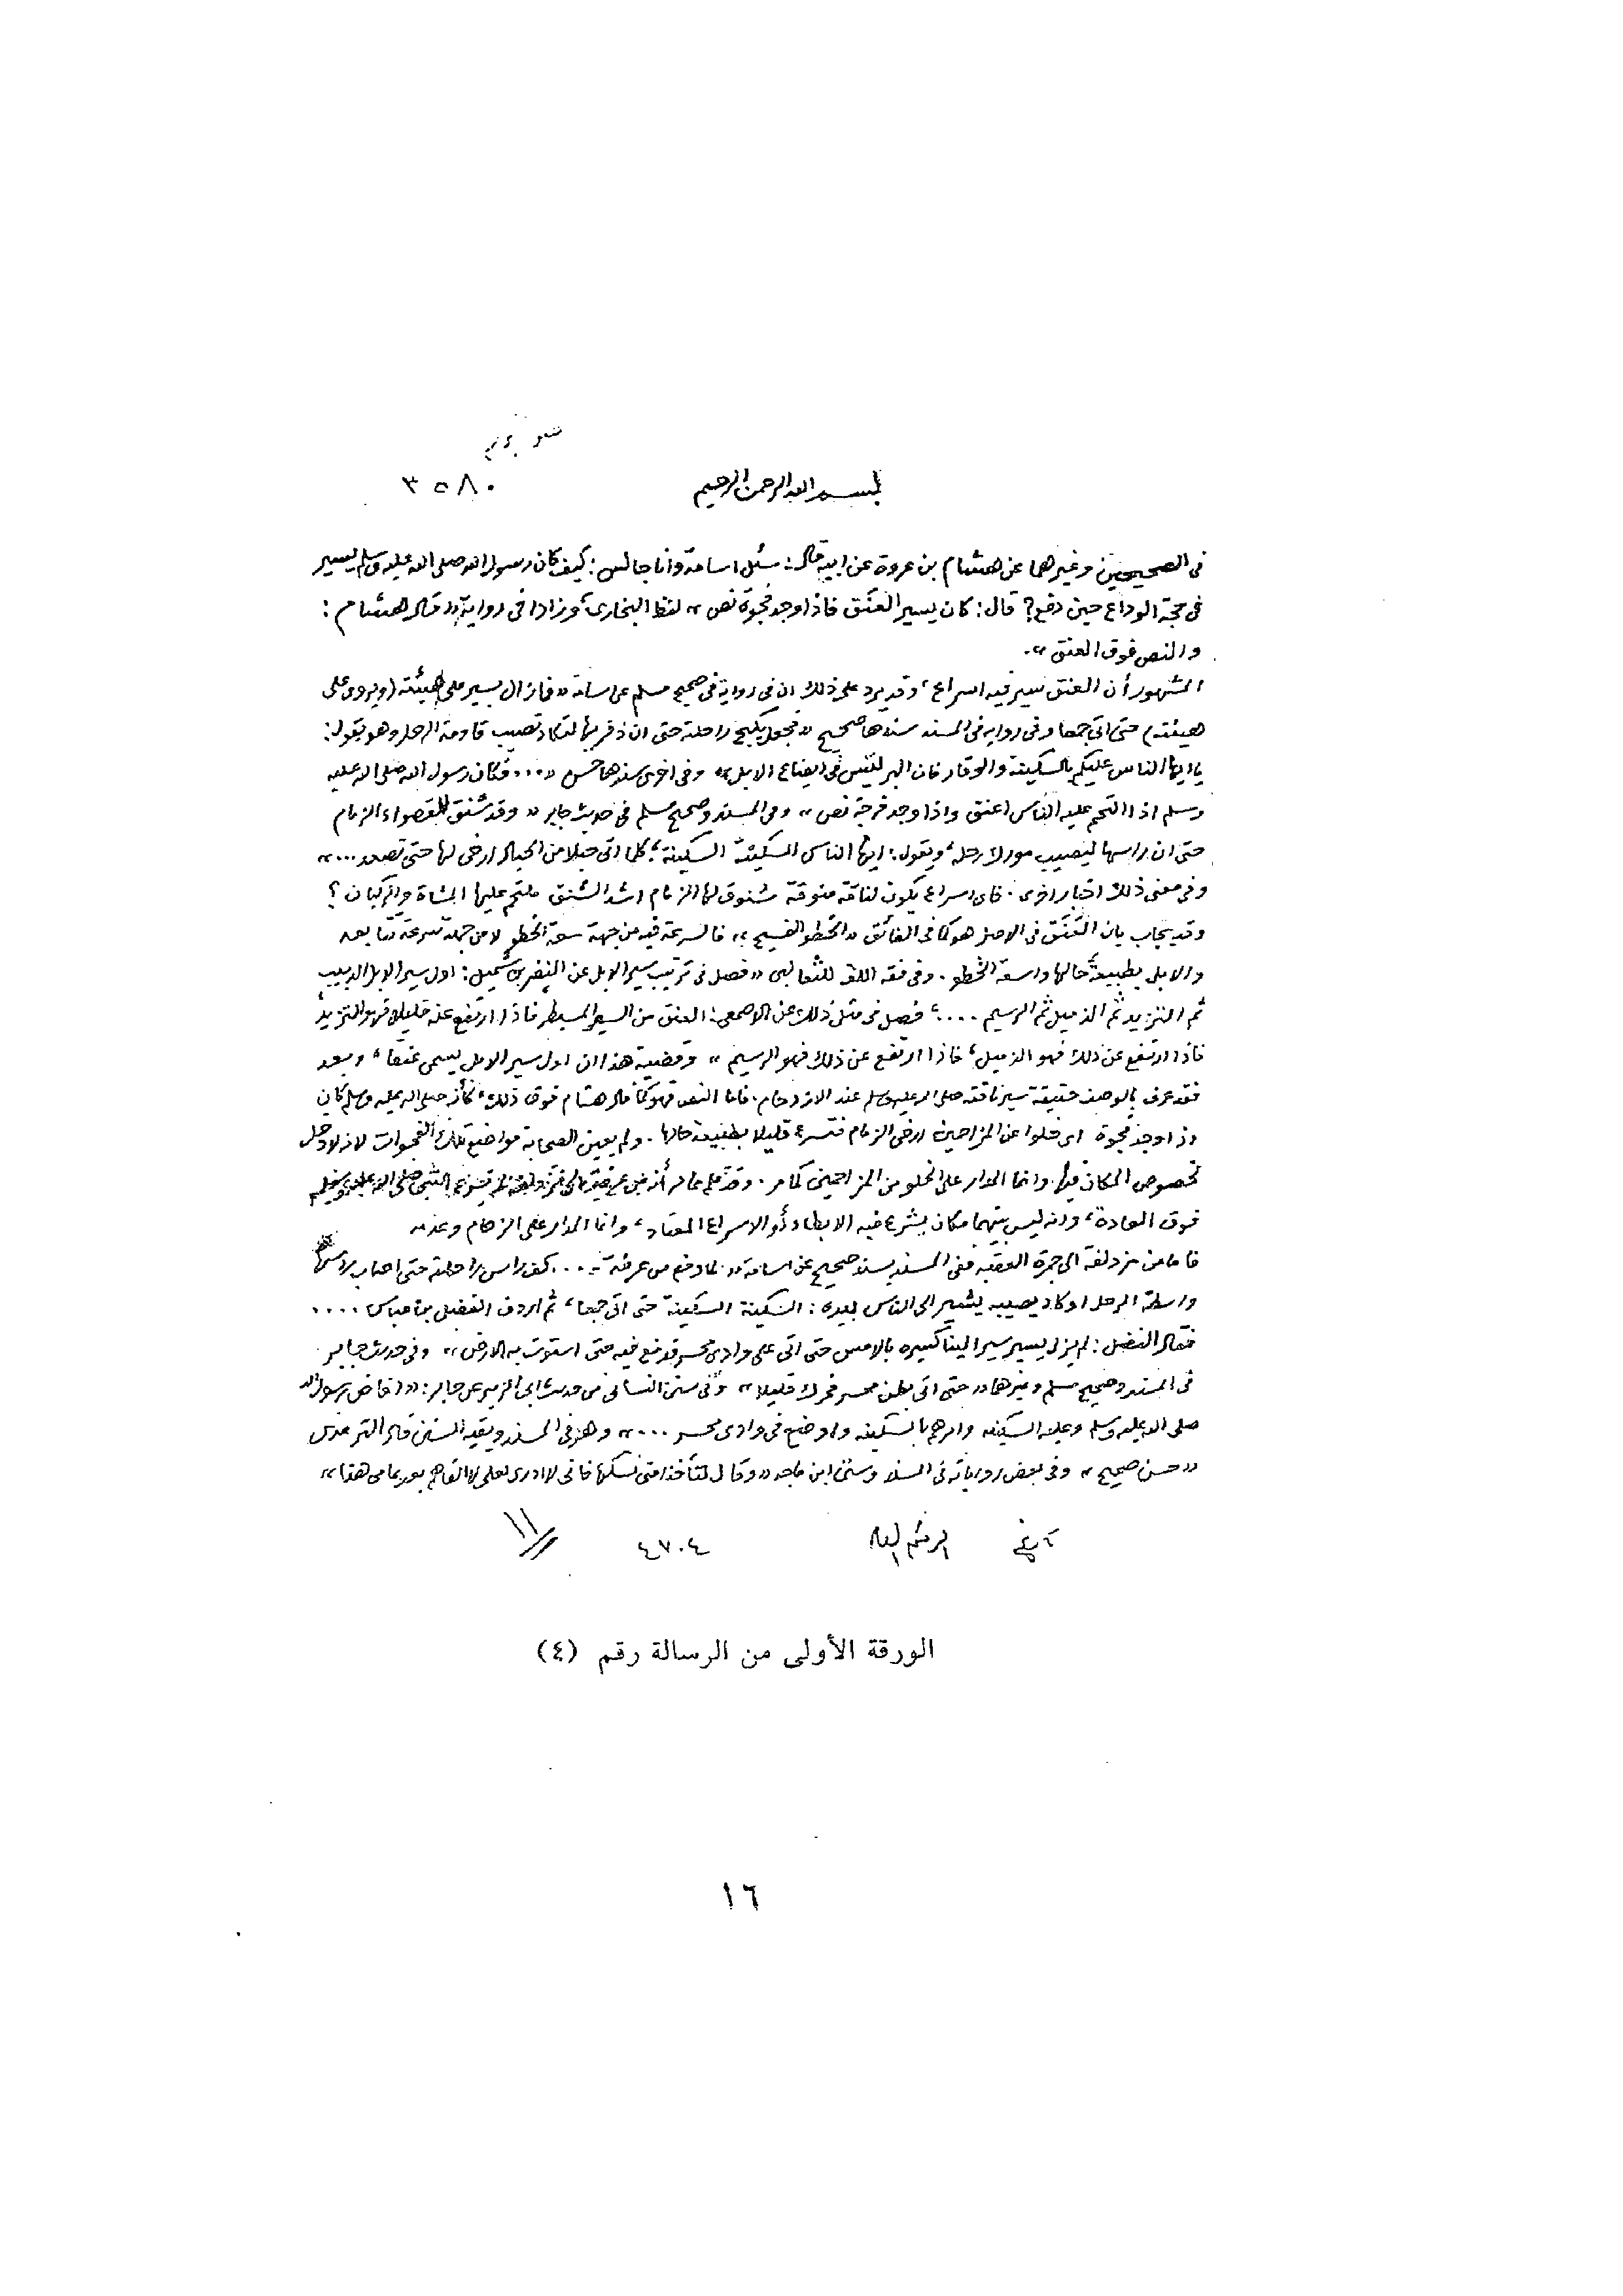 ٣٥٨٠
بسم الله الرحمن الرحيم
في الصحيحين وغيرهما عن هشام بن عروة عن ابيه قال: سئل اسامة وانا جالس: كيف كان رسول الله صلى الله عليه وسلم يسير
في حجة الوداع حين دفع؟ قال: كان يسير العنق فاذا وجد فجوة نص» لفظ البخاري، وزادا في رواية «قال هشام:
والنص فوق العنق».
المشهور أن العنق سير فيه اسراع، وقد يرد على ذلك ان في رواية في صحيح مسلم عن اسامة «فما زال يسير على هيئته (ويروى على
هينته) حتى اتى جمعا» وفي رواية في المسند سندها صحيح «فجعل يكبح راحلته حتى ان ذفريها لتكاد تصيب قادمة الرحل وهو يقول:
يا ايها الناس عليكم بالسكينة والوقار فان البر ليس في ايضاع الابل» وفي اخرى سندها حسن «... فكان رسول الله صلى الله عليه
وسلم اذا التحم عليه الناس اعنق واذا وجد فرجة نص» وفي المسند وصحيح مسلم في حديث جابر «وقد شنق للقصواء الزمام
حتى ان راسها ليصيب مورك رحله، ويقول: ايها الناس السكينة السكينة، كلما اتى حبلا من الحبال ارخى لها حتى تصعد ...»
وفي معنى ذلك اخبار اخرى. فاي اسراع يكون لناقة منوقة شنوق لها الزمام اشد الشنق ملتحم عليها المشاة والركبان؟
وقد يجاب بان العنق في الاصل هو كما في الفائق «الخطو الفسيح» فالسرعة فيه من جهة سعة الخطو لا من جهة سرعة تتابعه
والابل بطبيعة حالها واسعة الخطو. وفي فقه اللغة للثعالبي «فصل في ترتيب سير الابل عن النضر بن شميل: اول سير الابل الدبيب
ثم التزيد ثم الذميل ثم الرسيم ....، فصل في مثل ذلك عن الاصمعي: العنق من السير المسبطر فاذا ارتفع عنه قليلا فهو التزيد
فاذا ارتفع عن ذلك فهو الذميل، فاذا ارتفع عن ذلك فهو الرسيم» وقضية هذا ان اول سير الابل يسمى عنقا، وبعد
فقد عرف بالوصف حقيقة سير ناقته صلى الله عليه وسلم عند الازدحام. فاما النص فهو كما قال هشام فوق ذلك، فكأنه صلى الله عليه وسلم كان
اذا وجد فجوة اي خلوا عن المزاحمين ارخى الزمام فتسرع قليلا بطبيعة حالها. ولم يعين الصحابة مواضع تلك الفجوات لانه لا دخل
لخصوص المكان فيها. وانما المدار على الخلو من المزاحمين كما مر. وقد علم مما مر أنه من عرفة الى مزدلفة لم يسرع النبي صلى الله عليه وسلم
فوق العادة، وانه ليس بينهما مكان يشرع فيه الابطاء أو الاسراع المعتاد، وانما المدار على الزحام وعدمه
فاما من مزدلفة الى جمرة العقبة ففي المسند بسند صحيح عن اسامة «لما دفع من عرفة ... كف راس راحلته حتى اصاب راسها
واسطة الرحل او كاد يصيبه يشير الى الناس بيده: السكينة السكينة حتى اتى جمعا، ثم اردف الفضل بن عباس ....
فقال الفضل: لم يزل يسير سيرا لينا كسيره بالامس حتى اتى على وادي محسر فدفع فيه حتى استوت به الارض» وفي حديث جابر
في المسند وصحيح مسلم وغيرها «حتى اتى بطن محسر فحرك قليلا» وفي سنن النسائي من حديث ابي الزبير عن جابر: «افاض رسول الله
صلى الله عليه وسلم وعليه السكينة وامرهم بالسكينة واوضع في وادي محسر ...» وهو في المسند وبقية السنن قال الترمذي
«حسن صحيح» وفي بعض رواياته في المسند وسنن ابن ماجه «وقال لتأخذ امتي نسكها فاني لا ادري لعلي لا القاهم بعد عامي هذا»
٤٧٠٤
١١
الورقة الأولى من الرسالة رقم (٤)
١٦